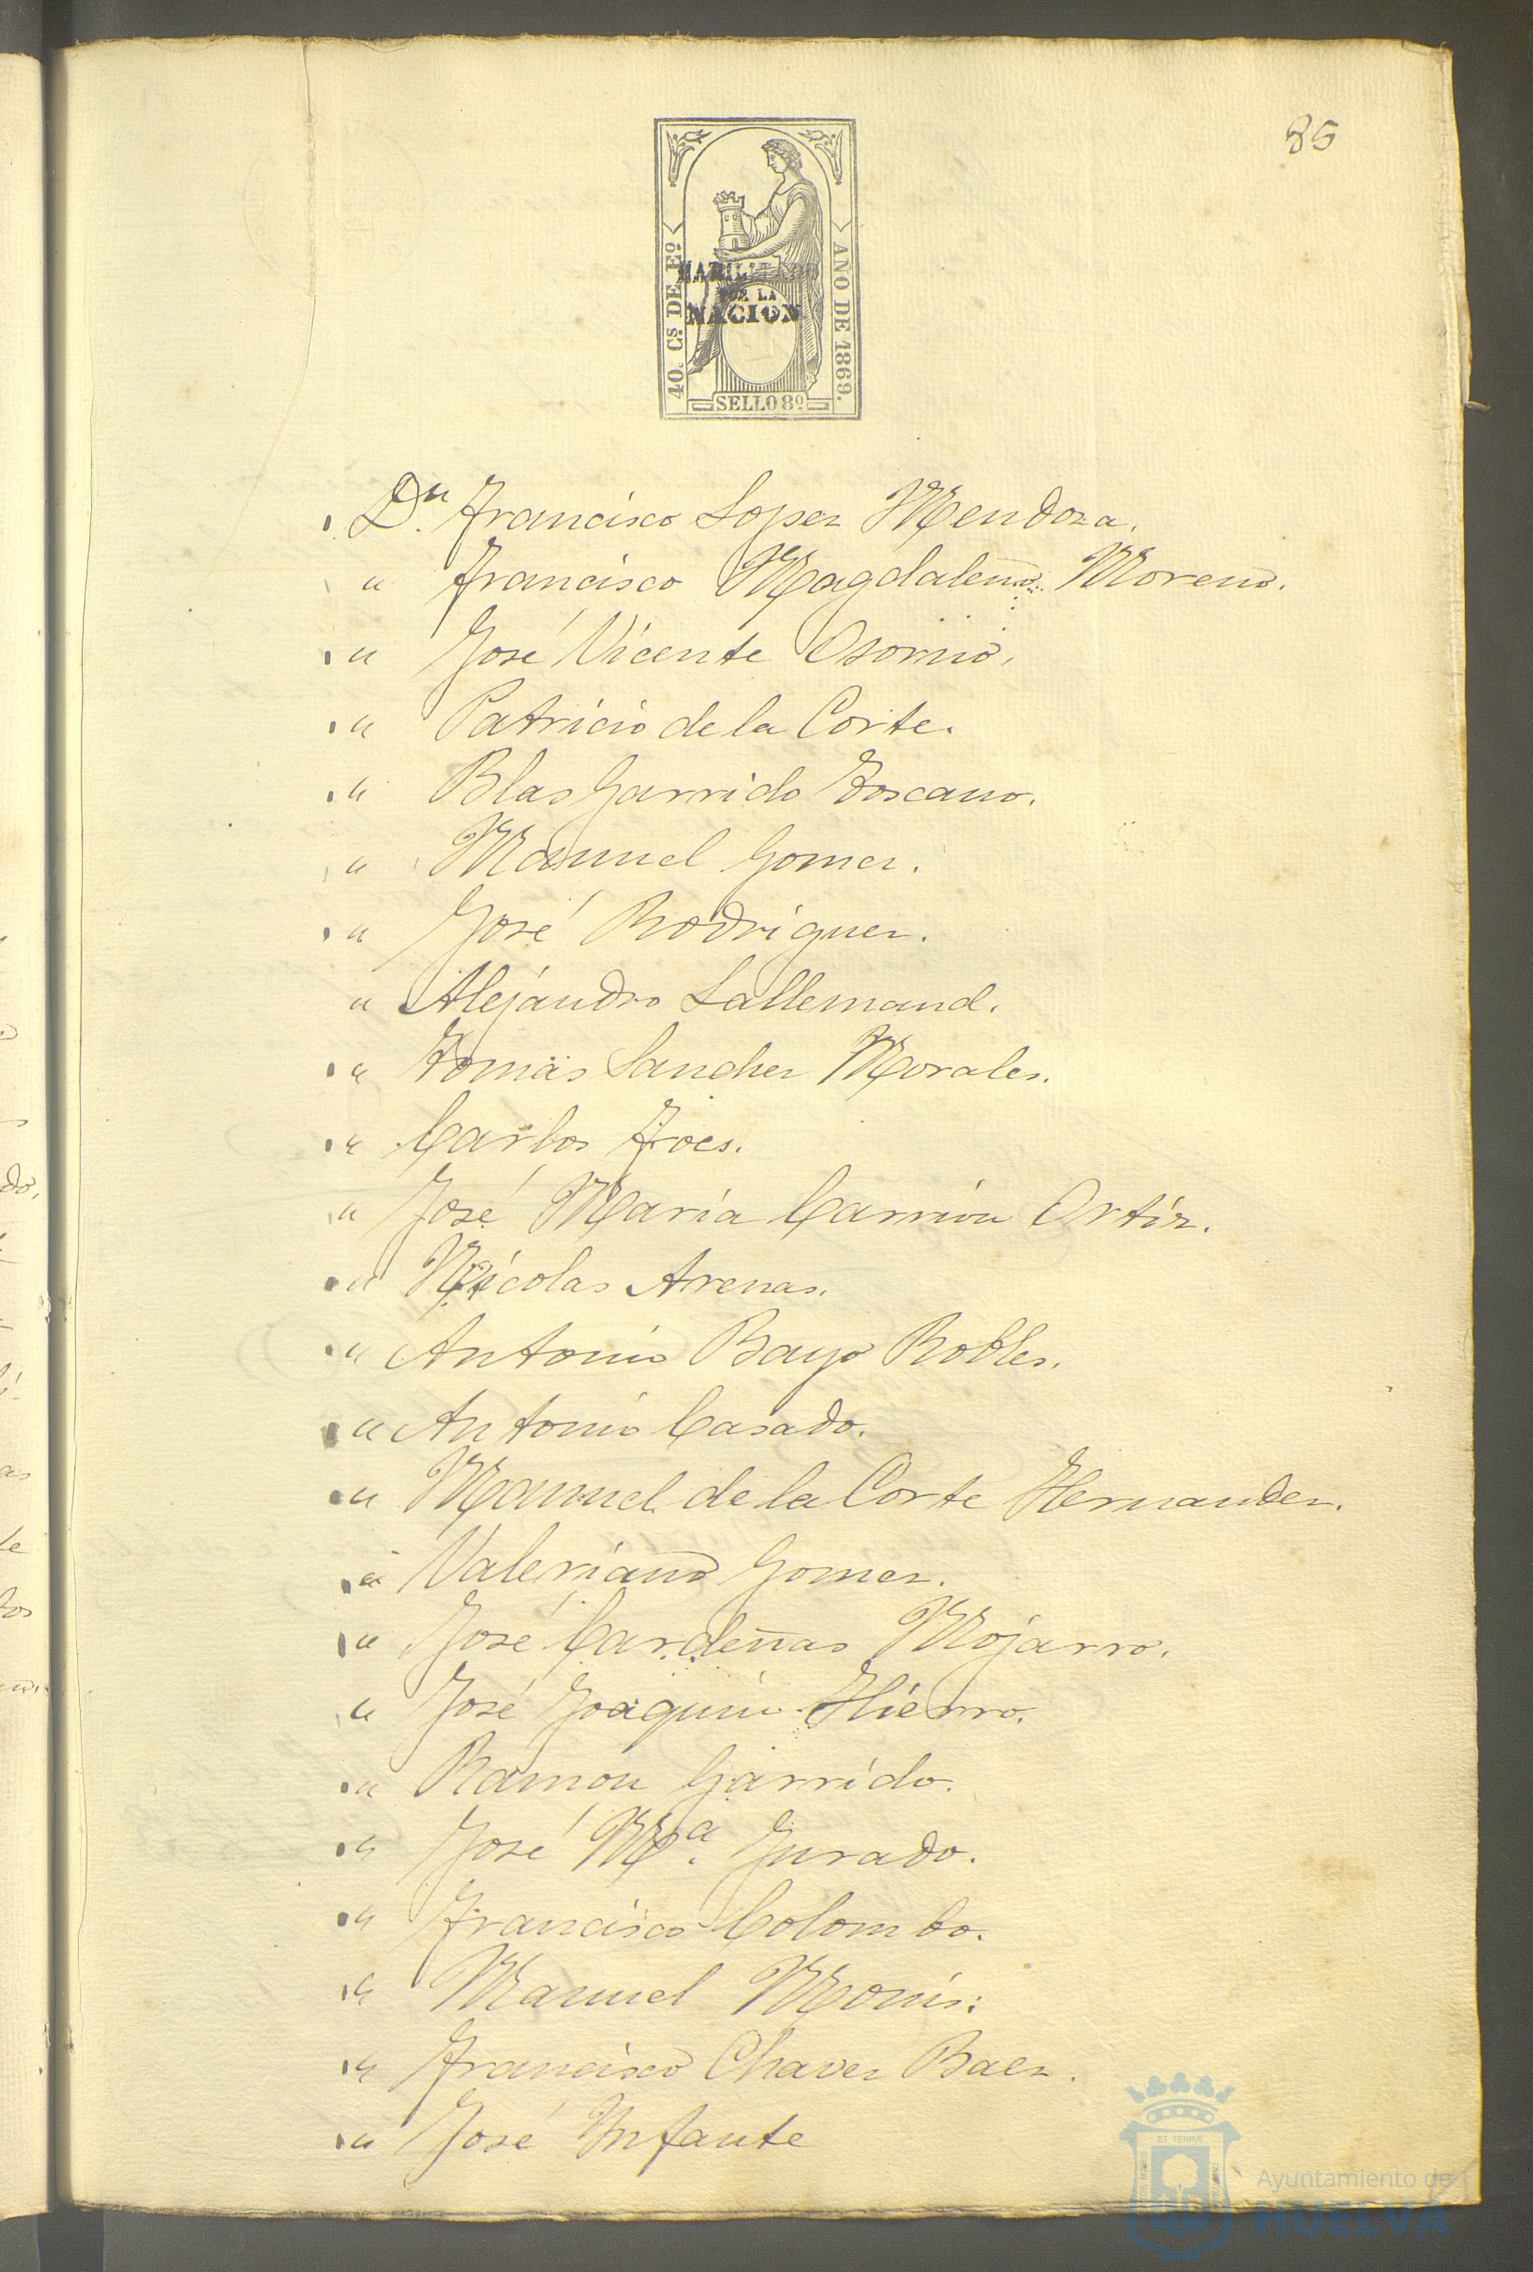 85
40. Cs. DE Eº.
AÑO DE 1869.
HABILITADO
POR LA
NACION
SELLO 8º
Dn. Francisco Lopez Mendoza.
" Francisco Magdaleno Moreno.
" José Vicente Osorno.
" Patricio de la Corte.
" Blas Garrido Toscano.
" Manuel Gomez.
" José Rodriguez.
" Alejandro Lallemand.
" Tomas Sanchez Morales.
" Carlos Froes.
" José Maria Carrion Ortiz.
" Nicolas Arenas.
" Antonio Bayo Robles.
" Antonio Casado.
" Manuel de la Corte Hernandez.
" Valeriano Gomez.
" José Cardeñas Mojarro.
" José Joaquin Hierro.
" Ramon Garrido.
" José Mª. Jurado.
" Francisco Colombo.
" Manuel Monis.
" Francisco Chavez Baez.
" José Infante
Ayuntamiento de
HUELVA